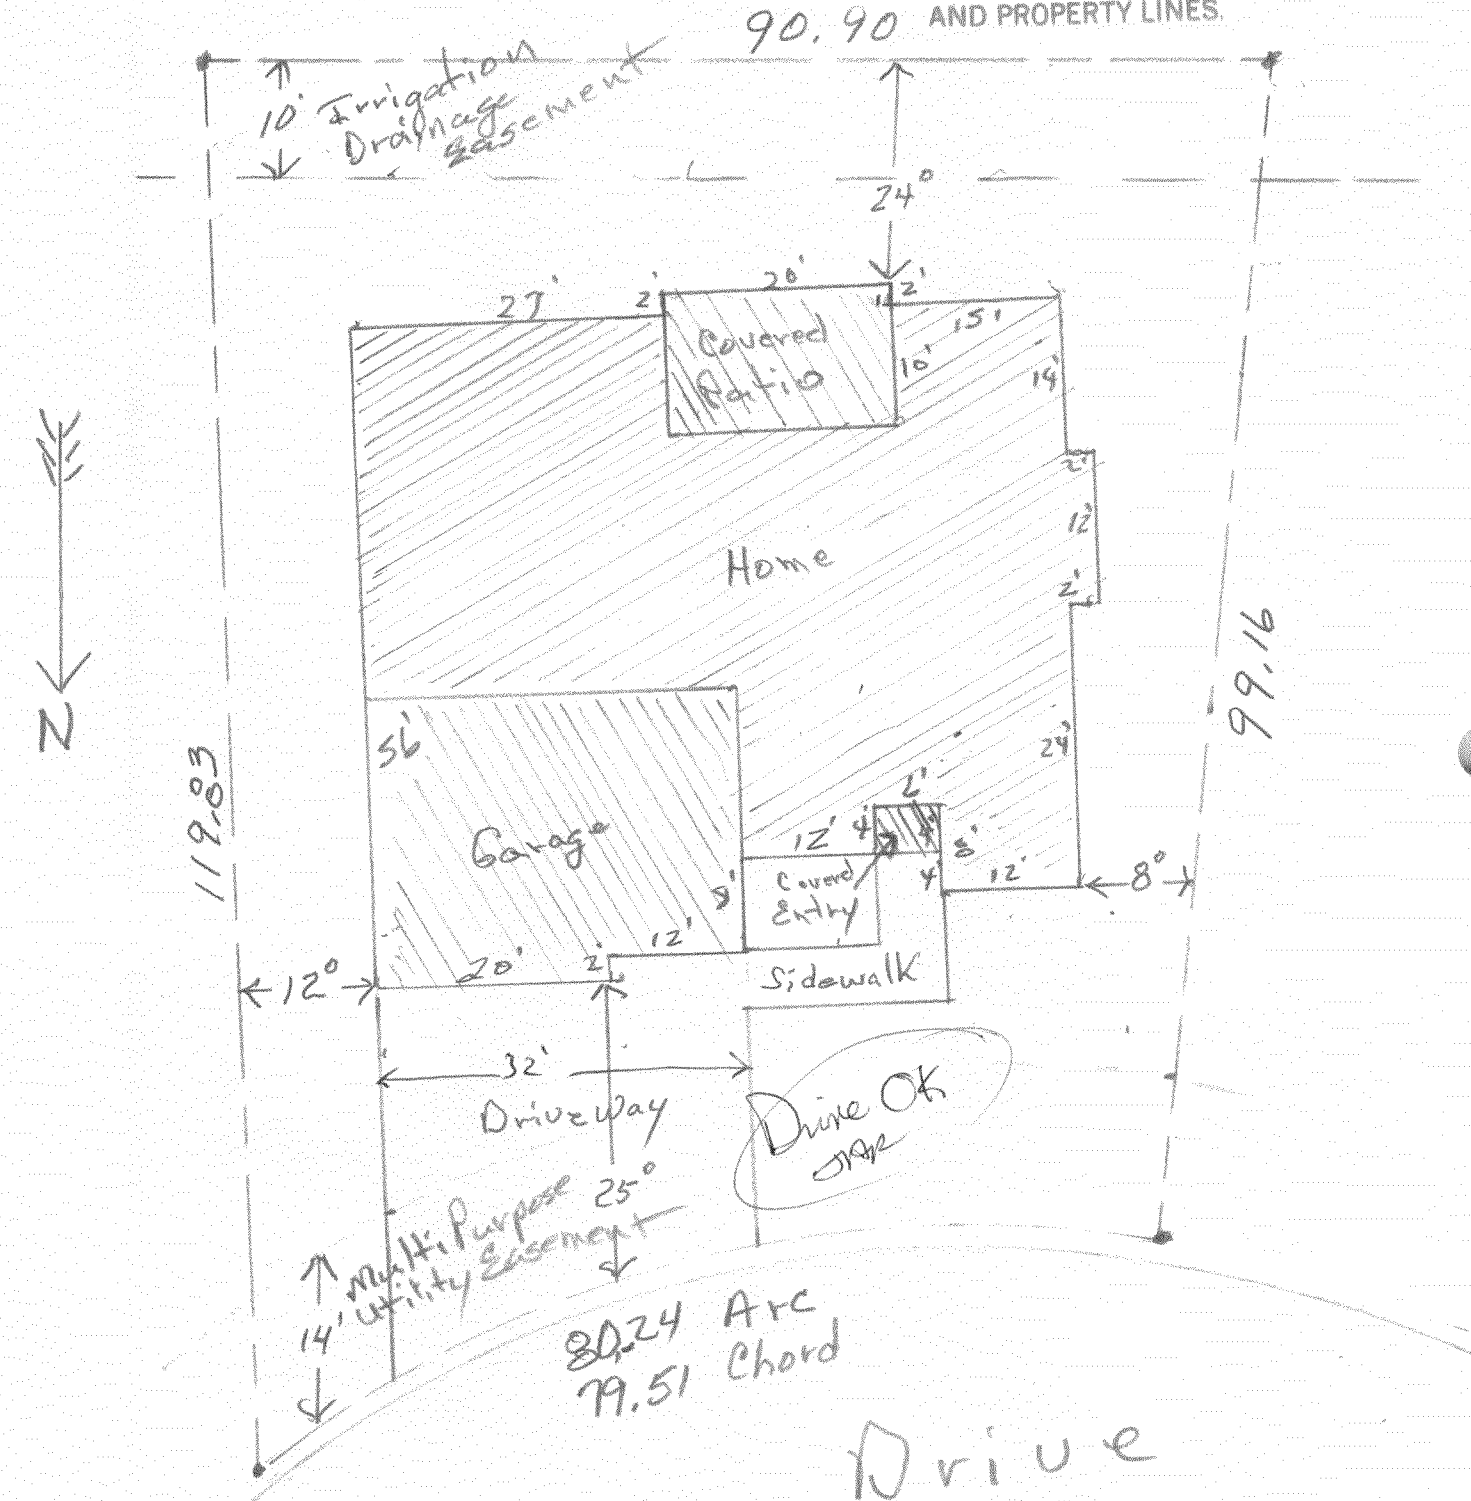 90.90 AND PROPERTY LINES.
10' Irrigation
Drainage
Easement
24°
27' 2' 20' 2'
15'
Covered
Patio
10'
14'
2'
12'
2'
Home
N
99.16
56'
24'
119.83
Garage
6'
12' 4' 4' 8'
Covered
Entry
8' 4' 12' 8°
20' 2' 12'
Sidewalk
12°
32'
DriveWay
Drive OK
25°
MultiPurpose
Utility Easement
14'
80.24 Arc
79.51 Chord
Drive